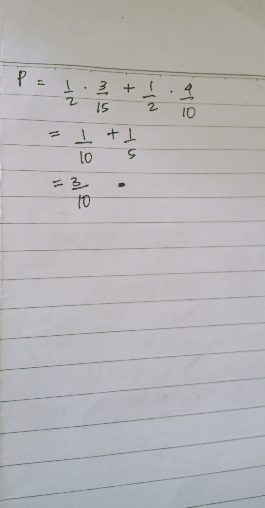 P = 1/2 · 3/15 + 1/2 · 4/10
= 1/10 + 1/5
= 3/10